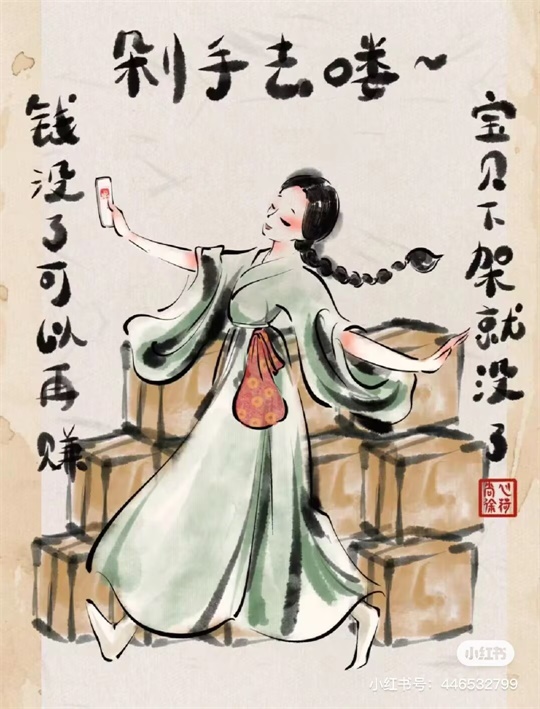 剁手去喽~
钱没了可以再赚
宝贝下架就没了
小红书
小红书号：446532799